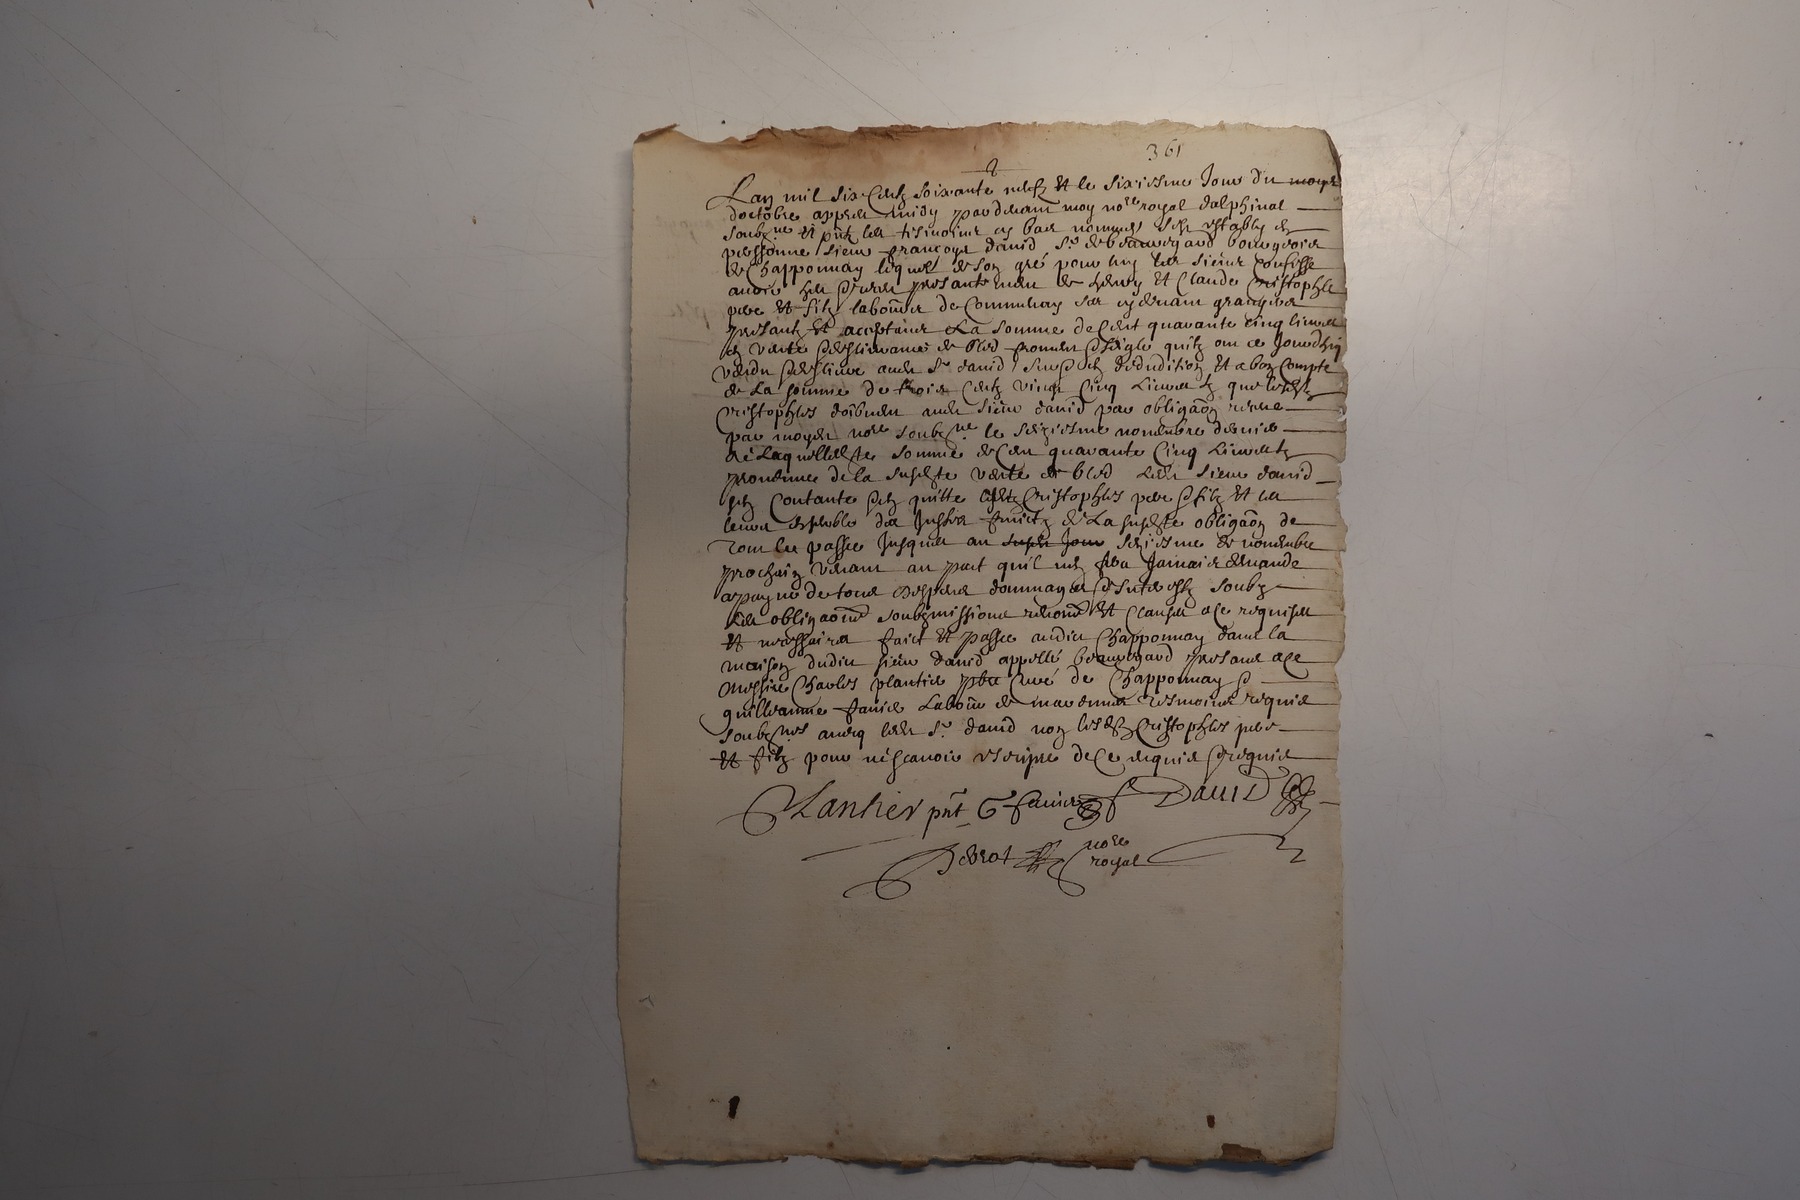 361
Lan mil six centz soixante neufz et le sixiesme Jour du moys
doctobre appres midy pardevant moy no.re royal dalphinal
soubz.ne et pntz les tesmoins cy bas nommes sest estably en
personne sieur françoys david s.r de beauregard bourgeois
de Chapponnay lequel de son gré pour luy les sieurs confesse
avoir heu receu presantement de henry et Claude Cristophle
pere et filz laboureur de Communay
presantz et acceptants La somme de Cent quarante cinq livres
en vante de bled froment seigle quilz ont ce Jourdhuy
vandu audit s.r david deduction et a bon Compte
de La somme de trois Centz vingt Cinq Livres tz que lesdtz
Cristophles doibvent audit sieur david par obligaõn receue
par moydit no.re soubz.ne le seiziesme novembre dernier
de Laquelle somme de Cent quarante Cinq Livres tz
provenue de la susdte vante de bled Ledit sieur david
sen Contante en quitte lesdtz Cristophles pere et filz et en
leur les Justes fruictz de La susdte obligaõn de
tout le passe Jusques au seiziesme de novembre
prochain venant au pact quil ne fera Jamais demande
a payne de tous despens dommages Interestz soubz
les obligaõns soubzmissions renonõn et clauses a ce requises
et necessaires faict et passe audit Chapponnay dans la
maison dudit sieur david appellé beauregard presant a ce
Messire Charles plantier curé de Chapponnay
guilleaume favier Laboureur de marennes tesmoins requis
soubz.nes avecq ledit s.r david non lesdtz Cristophles pere
et filz pour ne sçavoir escripre de ce enquis requis
Plantier pnt G favier f David
no.re
royal